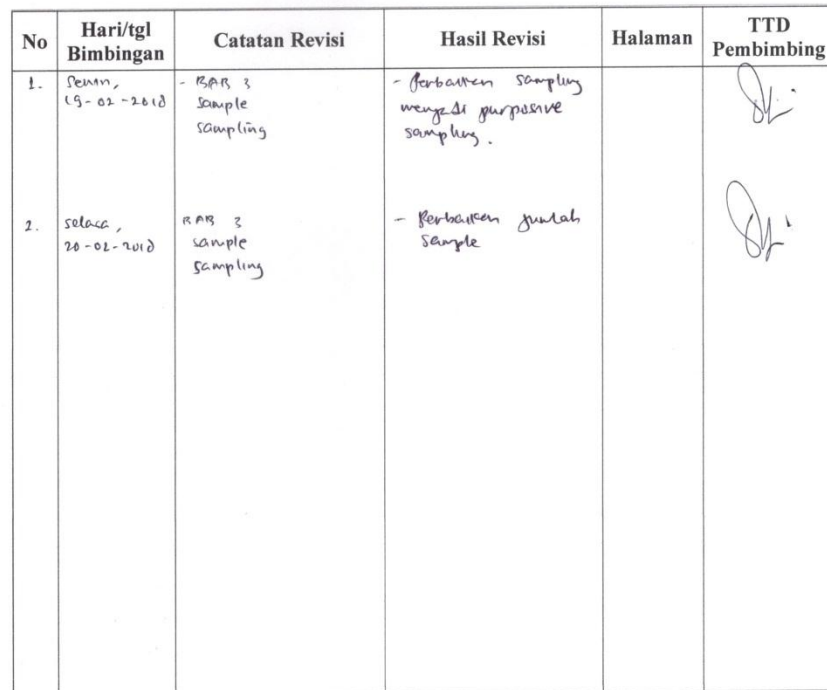 No
Hari/tgl
Bimbingan
Catatan Revisi
Hasil Revisi
Halaman
TTD
Pembimbing
1.
Senin,
19-02-2018
- BAB 3
sample
sampling
- Perbaiken sampling
menjadi purposive
sampling.
2.
selasa,
20-02-2018
BAB 3
sample
sampling
- Perbaiken jumlah
sample